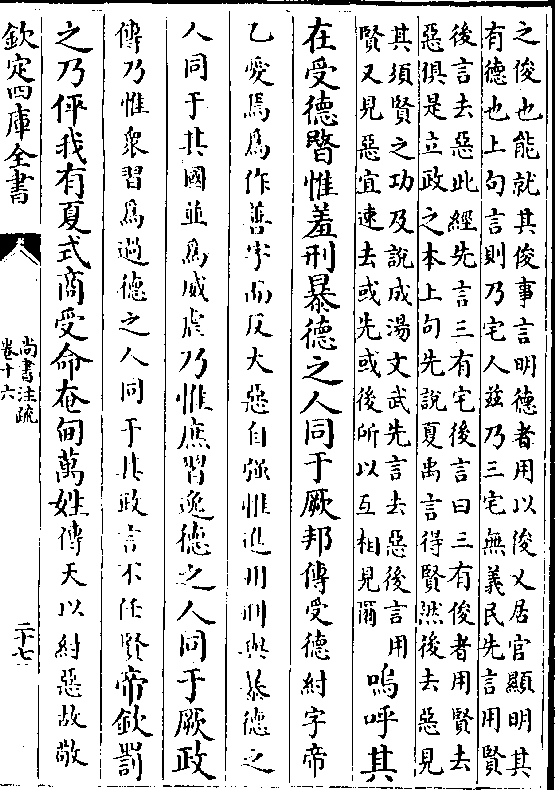 之俊也能就其俊事言明德者用以俊乂居官顯明其
有德也上句言則乃宅人茲乃三宅無義民先言用賢
後言去惡此經先言三有宅後言曰三有俊者用賢去
惡俱是立政之本上句先說夏禹言得賢然後去惡見
其須賢之功及說成湯文武先言去惡後言用
賢又見惡宜速去或先或後所以互相見爾
嗚呼其
在受德暋惟羞刑暴德之人同于厥邦傳受德紂字帝
乙愛焉爲作善字而反大惡自强惟進用刑與暴德之
人同于其國並爲威虐乃惟庶習逸德之人同于厥政
傳乃惟衆習爲過德之人同于其政言不任賢帝欽罰
之乃伻我有夏式商受命奄甸萬姓傳天以紂惡故敬
欽定四庫全書
尚書注疏
卷十六
二十七